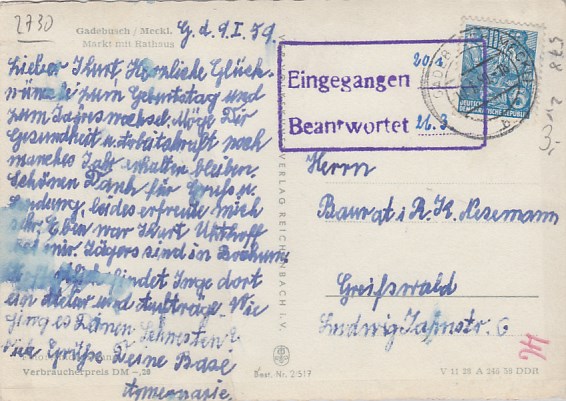 2730
Gadebusch / Meckl.
Markt mit Rathaus
G. d. 9. I. 59.
Lieber Kurt! Herzliche Glück-
wünsche zum Geburtstag und
zum Jahreswechsel. Möge Dir
Gesundheit u. Arbeitskraft noch
manches Jahr erhalten bleiben.
Schönen Dank für Gruß u.
Sendung, beides erfreute mich
sehr. Eben war Kurt
bei mir. Jägers sind in
findet Inge dort
ein Atelier und Aufträge. Wie
ging es Deinen Schwestern?
Viele Grüße Deine Base
Annemarie.
Verbraucherpreis DM -,20
VERLAG REICHENBACH I. V.
Best. Nr. 2/517
Eingegangen 20/1
Beantwortet 26.3
DEUTSCHE DEMOKRATISCHE REPUBLIK
Herrn
Baurat i. R. K. Nesemann
Greifswald
Ludwig Jahnstr. 6
V 11 28 A 246 58 DDR
3,-